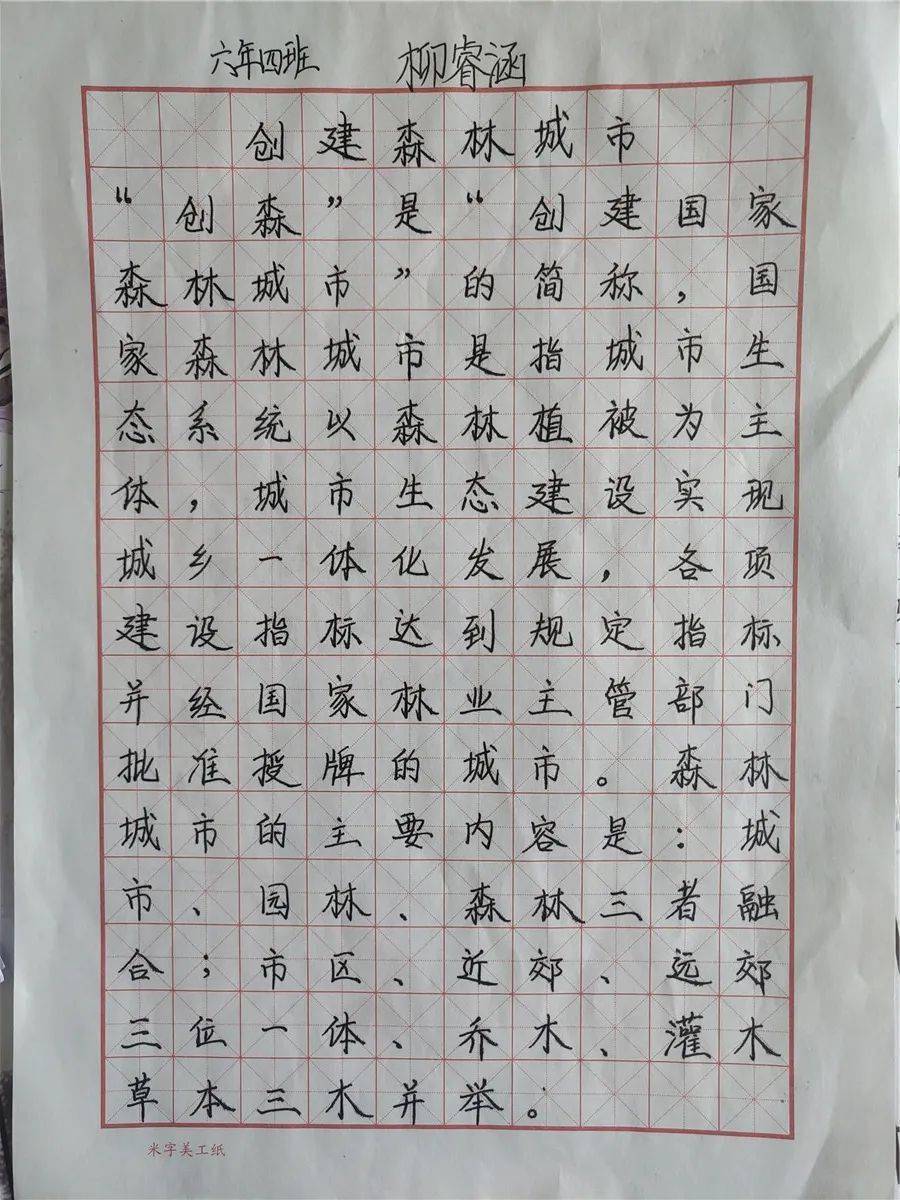 六年四班 柳睿涵
创建森林城市
“创森”是“创建国家
森林城市”的简称，国
家森林城市是指城市生
态系统以森林植被为主
体，城市生态建设实现
城乡一体化发展，各项
建设指标达到规定指标
并经国家林业主管部门
批准授牌的城市。森林
城市的主要内容是：城
市、园林、森林三者融
合；市区、近郊、远郊
三位一体、乔木、灌木
草本三木并举。
米字美工纸